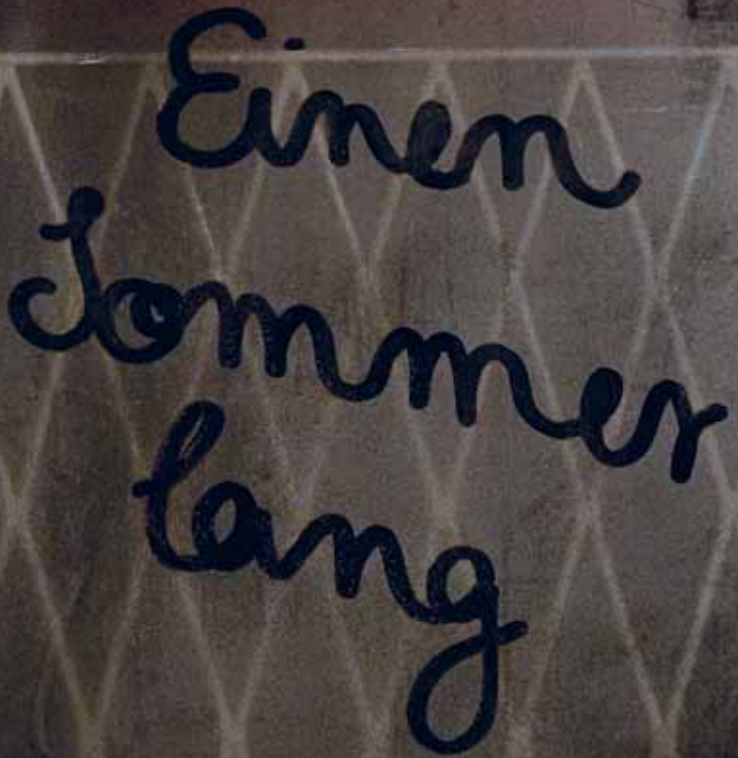 Einen
Sommer
lang